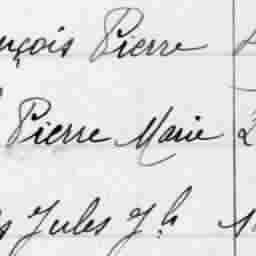 nçois Pierre
Pierre Marie 2
s Jules Jh 1